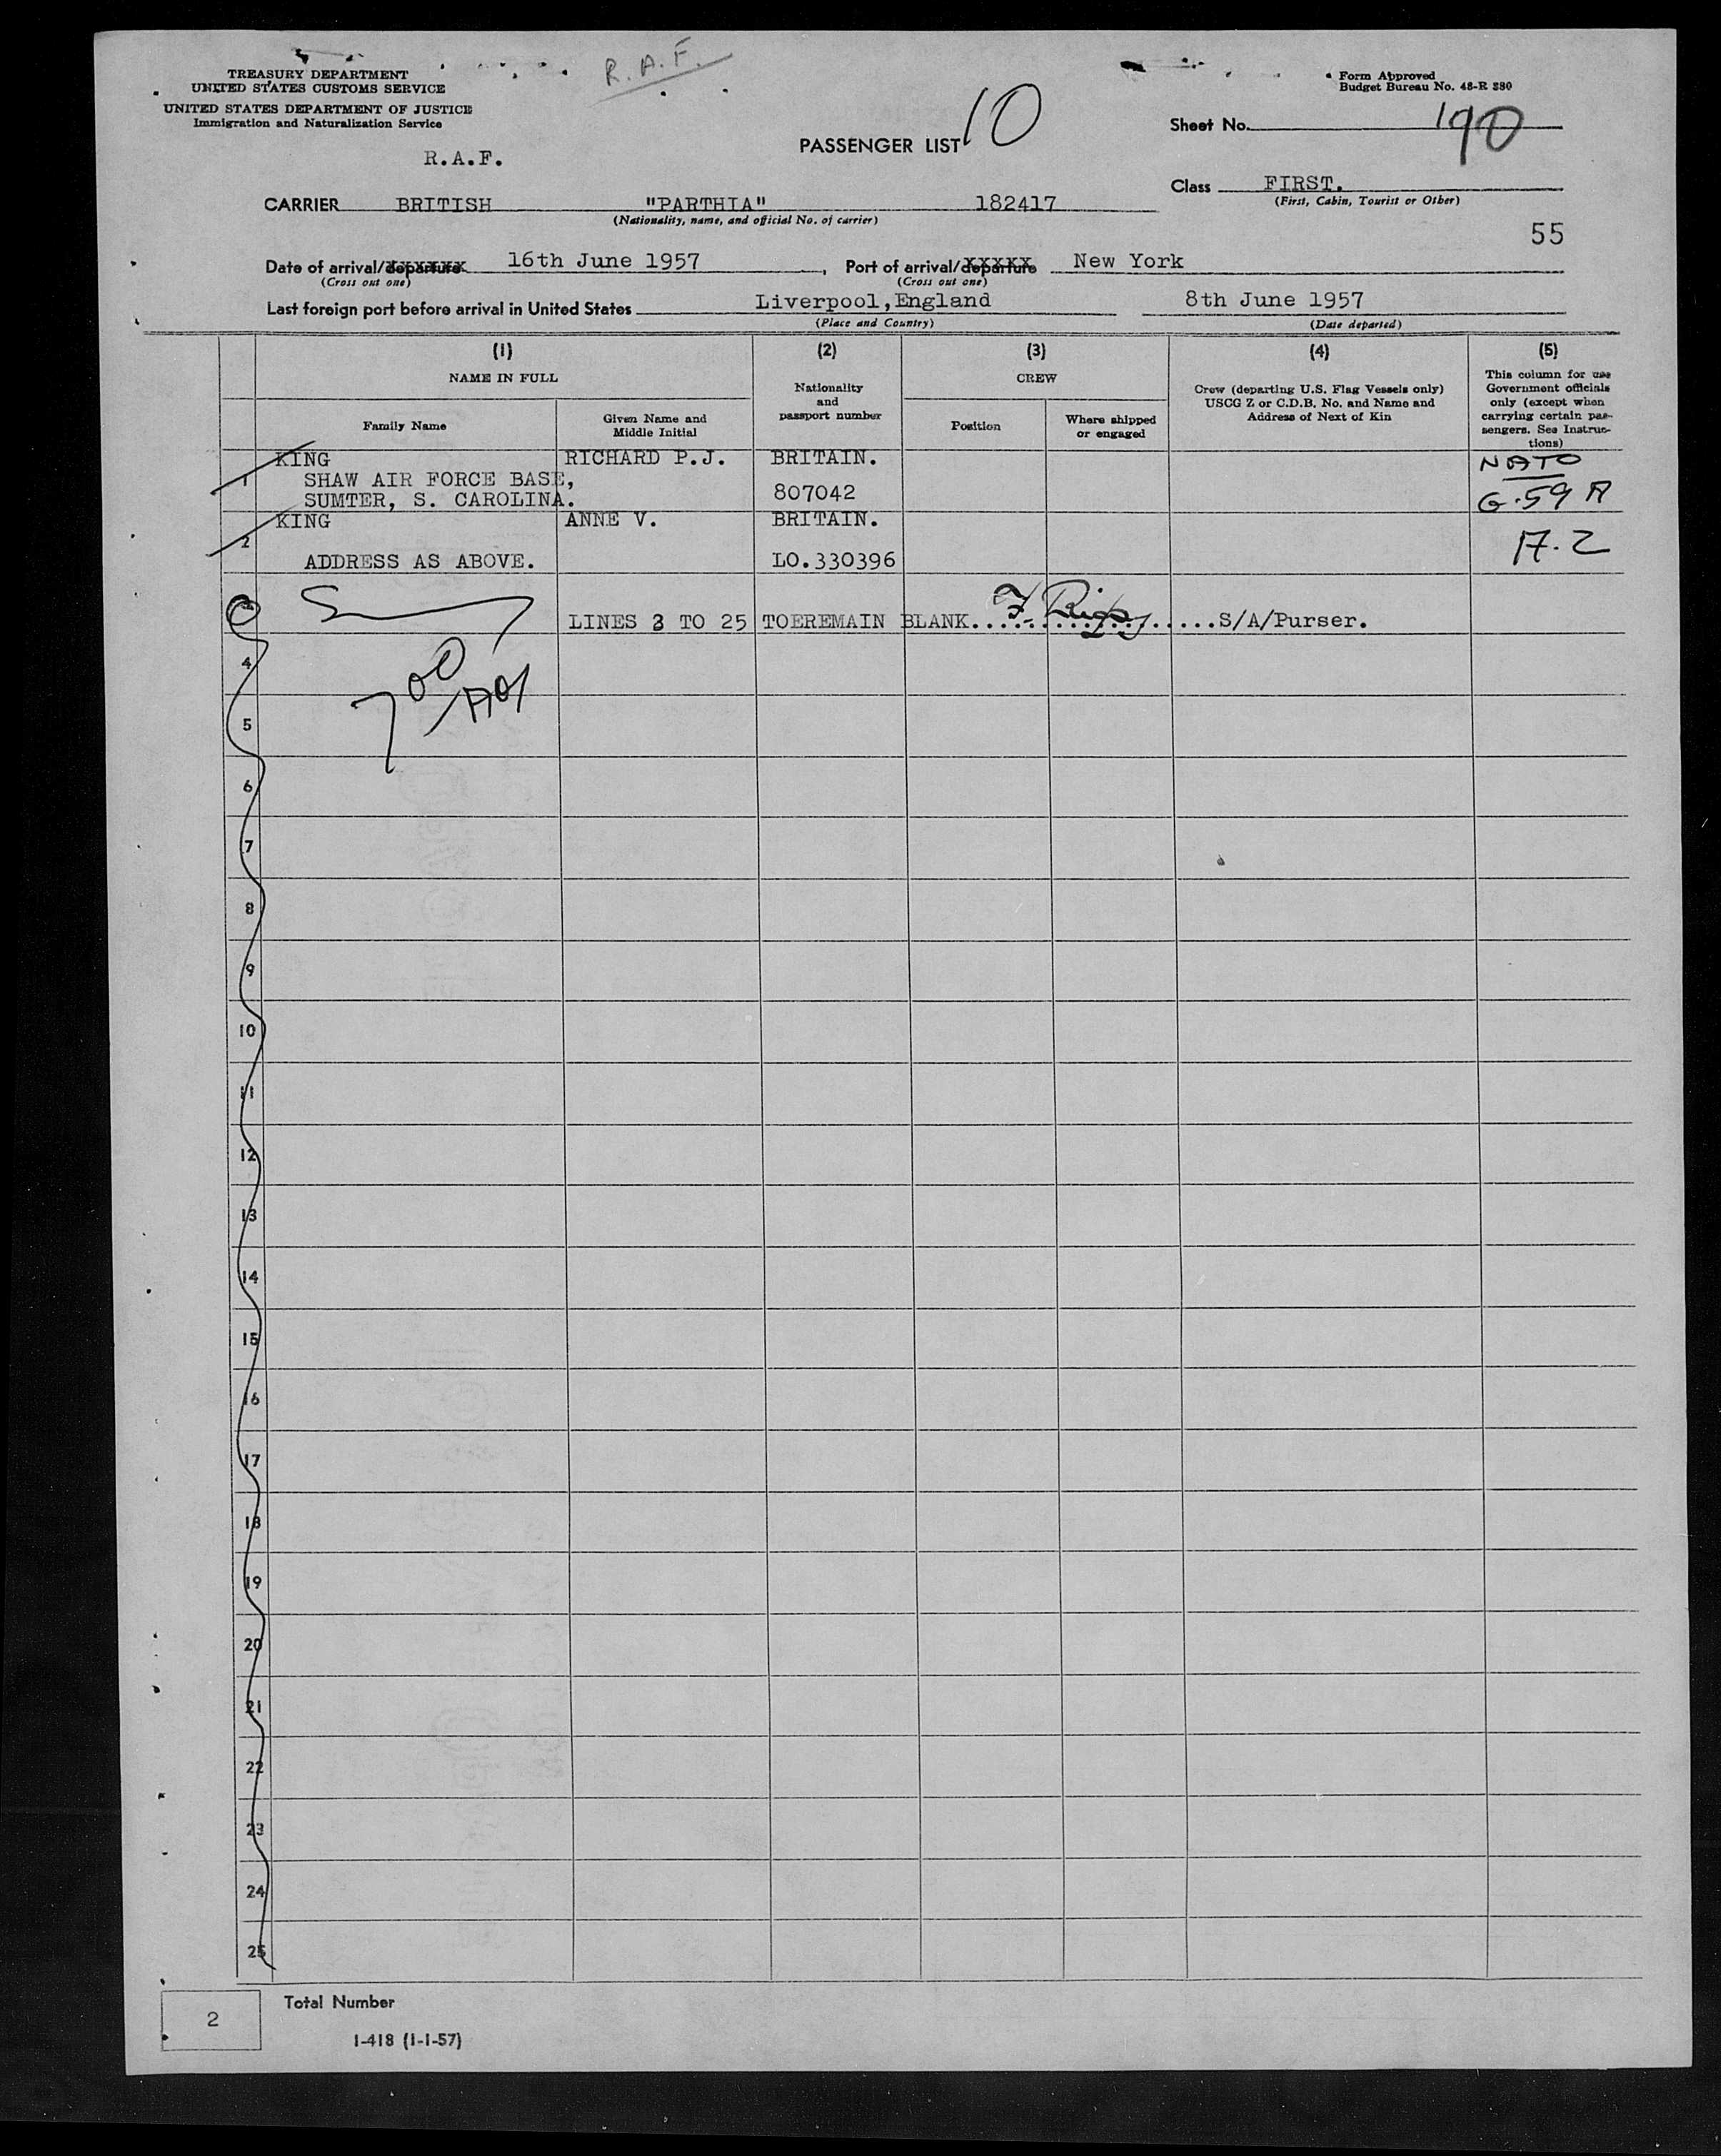 R.A.F.
TREASURY DEPARTMENT
UNITED STATES CUSTOMS SERVICE
UNITED STATES DEPARTMENT OF JUSTICE
Immigration and Naturalization Service
R.A.F.
PASSENGER LIST 10
Form Approved
Budget Bureau No. 48-R 880
Sheet No. 190
Class FIRST.
(First, Cabin, Tourist or Other)
CARRIER BRITISH "PARTHIA" 182417
(Nationality, name, and official No. of carrier)
55
Date of arrival/departure 16th June 1957, Port of arrival/departure New York
(Cross out one) (Cross out one)
Last foreign port before arrival in United States Liverpool,England 8th June 1957
(Place and Country) (Date departed)
(1) (2) (3) (4) (5)
NAME IN FULL
Family Name
Given Name and
Middle Initial
Nationality
and
passport number
CREW
Position
Where shipped
or engaged
Crew (departing U.S. Flag Vessels only)
USCG Z or C.D.B. No. and Name and
Address of Next of Kin
This column for use
Government officials
only (except when
carrying certain pas-
sengers. See Instruc-
tions)
KING RICHARD P.J. BRITAIN. NATO
1 SHAW AIR FORCE BASE,
SUMTER, S. CAROLINA. 807042 G-59 A
KING ANNE V. BRITAIN.
2 A-2
ADDRESS AS ABOVE. LO.330396
3 LINES 3 TO 25 TOEREMAIN BLANK..............S/A/Purser.
4
700
5
6
7
8
9
10
11
12
13
14
15
16
17
18
19
20
21
22
23
24
25
2 Total Number
I-418 (1-1-57)